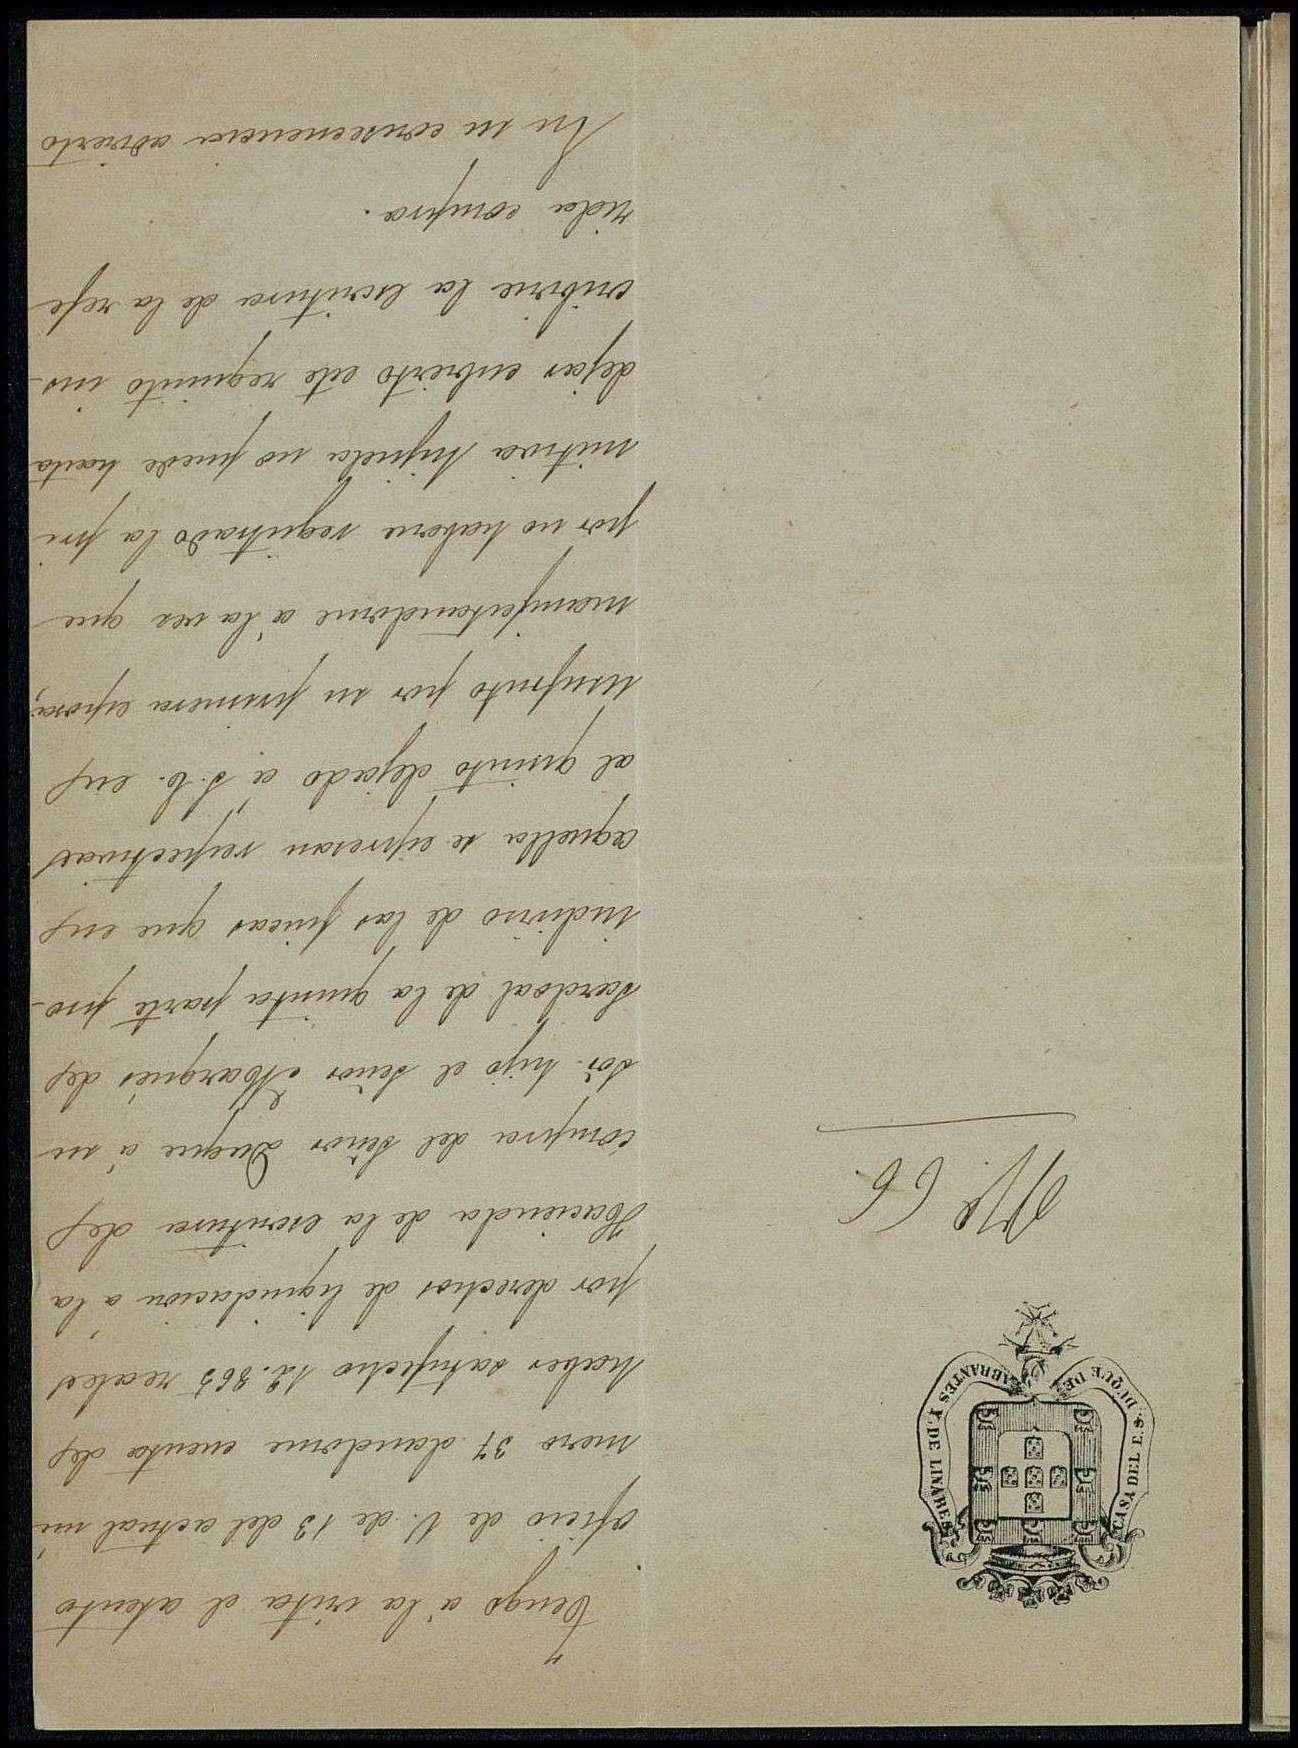 CASA DEL E.S. DUQUE DE ABRANTES Y DE LINARES
Nº 66.
Tengo á la vista el atento
oficio de V. de 13 del actual nú
mero 37 dandome cuenta del
haber satisfecho 12.865 reales
por derechos de liquidacion á la
Hacienda de la escritura del
compra del Señor Duque á su
Sor. hijo el Señor Marqués del
Sardoal de la quinta parte pro-
indiviso de las fincas que en
aquella se espresan respectivas
al quinto dejado á S.E. en
usufruto por su primera esposa;
manifestandome á la vez que
por no haberse registrado la pri
mitiva hijuela no puede hasta
dejar cubierto este requisito ins-
cribirse la escritura de la refe
rida compra.
En su consecuencia advierto